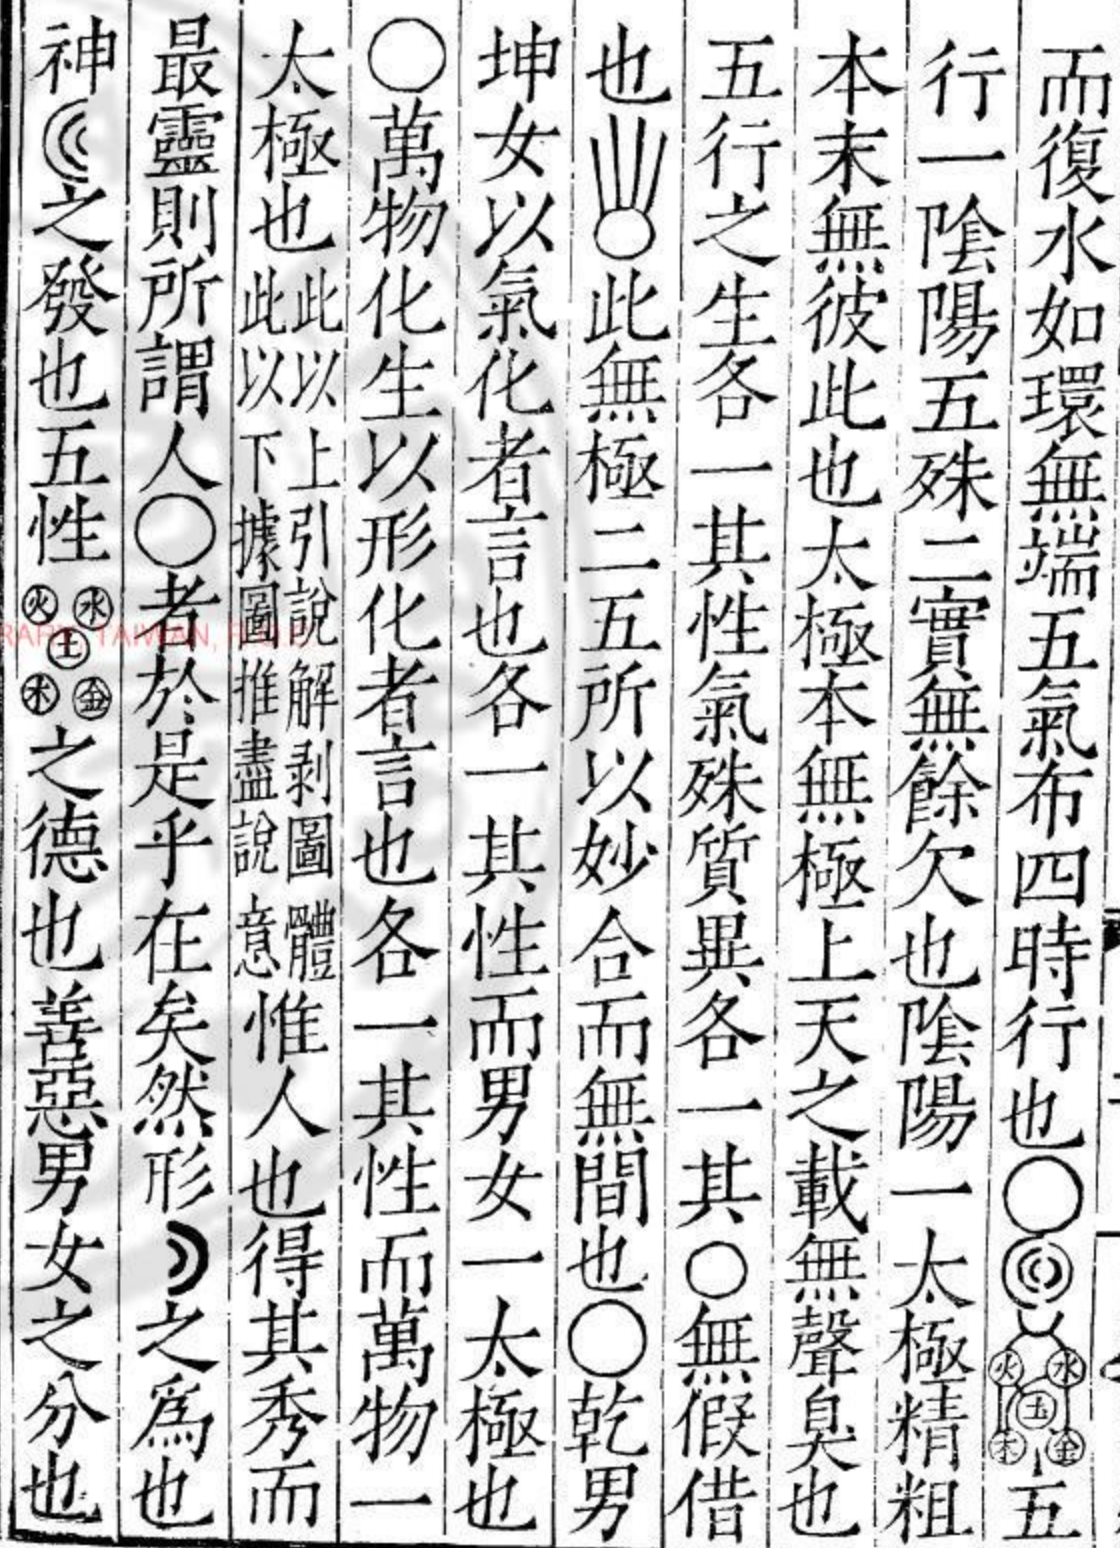 而復水如環無端五氣布四時行也〇◎火水土木金五
行一陰陽五殊二實無餘欠也陰陽一太極精粗
本末無彼此也太極本無極上天之載無聲臭也
五行之生各一其性氣殊質異各一其〇無假借
也〇此無極二五所以妙合而無間也〇乾男
坤女以氣化者言也各一其性而男女一太極也
〇萬物化生以形化者言也各一其性而萬物一
太極也此以上引說解剥圖體此以下據圖推盡說意惟人也得其秀而
最靈則所謂人〇者於是乎在矣然形之爲也
神之發也五性水火土木金之德也善惡男女之分也
RARY, TAIWAN, R.O.C.